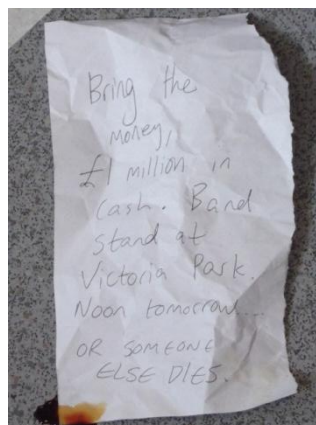 Bring the
money,
£1 million in
cash. Band
stand at
Victoria Park.
Noon tomorrow...
OR SOMEONE
ELSE DIES.